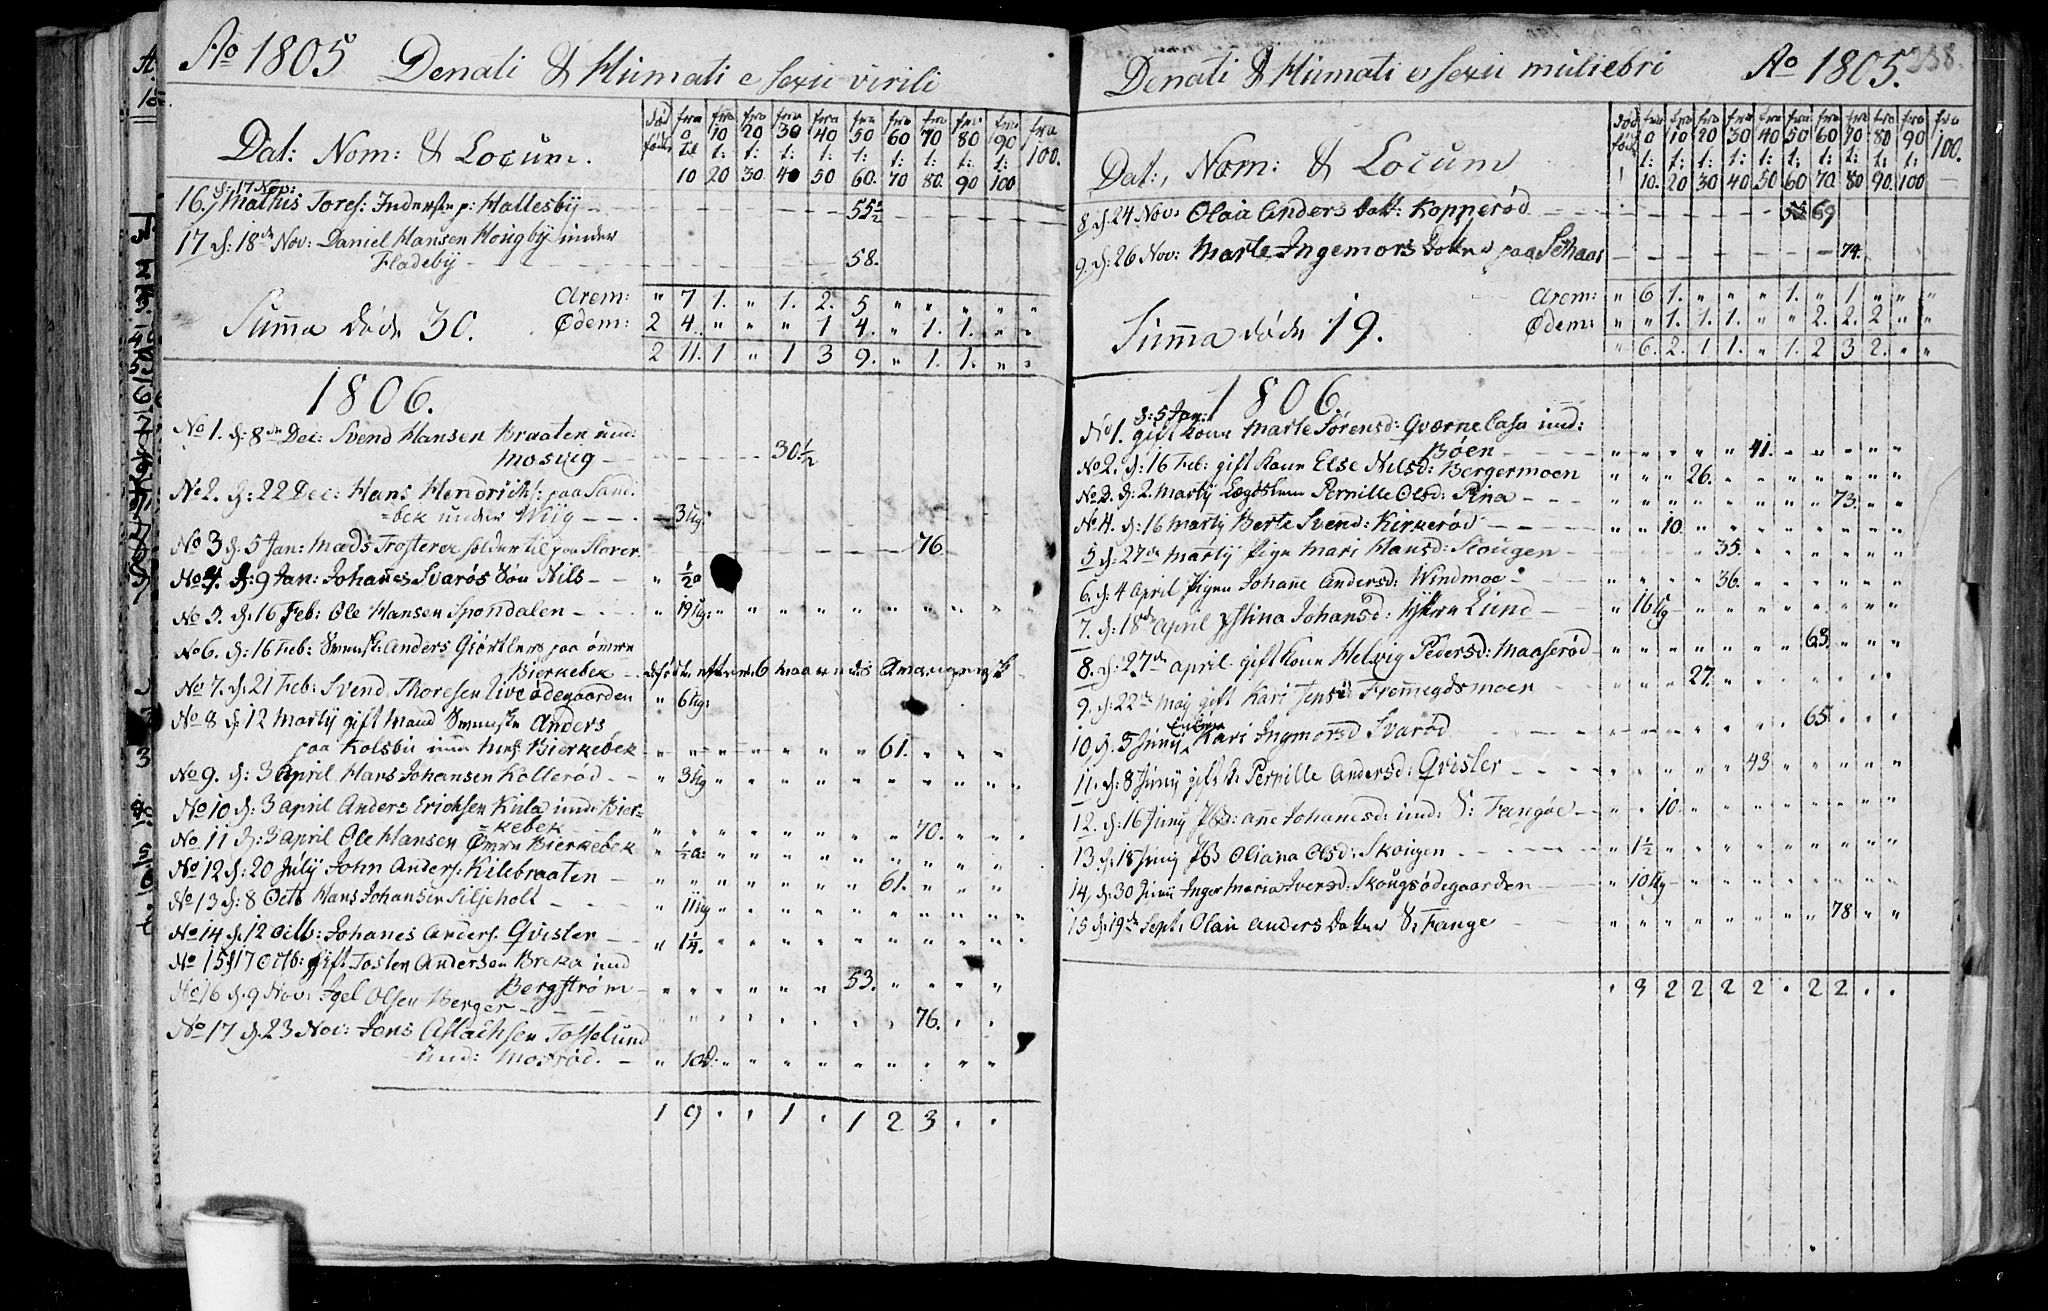 Ao 1805 Denati & Humati e sexu virili
Dat: Nom: & Locum.
død fødte | fra 0 til 10 | fra 10 t: 20 | fra 20 t: 30 | fra 30 t: 40 | fra 40 t: 50 | fra 50 t: 60. | fra 60 t: 70 | fra 70 t: 80. | fra 80 t: 90 | fra 90 t: 100 | fra 100.
16. d: 17 Nov: Mathis Tores: Inderste p: Hallesby 55 1/2
17 d: 18de Nov: Daniel Hansen Hougby under
Fladeby 58.
Arem: " 7 1. " 1. 2. 5 " " " " "
Summa døde 30. Ødem: 2 4. " " " 1 4. " 1. 1. " "
2 11. 1 " 1 3 9. " 1. 1. " "
1806.
No 1. d: 8de Dec: Svend Hansen Braaten und:
Mosvig 30 1/2
No 2. d: 22 Dec: Hans Hendrichs: paa Sand-
=bek under Wiig 3 Ug:
No 3 d. 5 Jan: Mads paa Storer. 76.
No 4. d: 9 Jan: Johañes Svarøs Søn Nils " 1/2 a
No 5. d. 16 Feb: Ole Hansen Spondalen " 19 Ug: " " " " " " " " "
No 6. d: 16 Feb: Svenske Anders paa
Bierkebek
No 7. d: 21 Feb: Svend Thoresen ødegaarden " 6 Ug:
No 8 d: 12 Martij gift Mand Svenske Anders
paa Kolsbu Bierkebek " " " " " " " 61. " " "
No 9. d: 3 April Hans Johansen Kollerød " 3 Ug " " " " " " " " "
No 10 d: 3 April Anders Erichsen Kula und: Bier-
=kebek " " " " " " " " 70. " " "
No 11 d: 3 April Ole Hansen Bierkebek " 1/2 a: " " " " " " " " "
No 12 d: 20 July John Anders: Kilebraaten " " " " " " " 61. " " "
No 13 d: 8 Octb Hans Johansen Siljeholt " 11 Ug " " " " " " " " "
No 14 d. 12 Octb: Johañes Anders. Qvisler " 1 1/4. " " " " " " " " "
No 15 d 17 Octb: gift Tosten Andersen Breka und
Bergstrøm " " " " " " 53. " " " "
No 16 d. 9 Nov: Olsen Berger " " " " " " " " 76. " "
No 17 d. 23 Nov: Jens Aslachsen Tosselund
und: Mosrød. " 10 d. " " " " " " " " "
1 9 " " 1 " 1 2 3 " "
Denati & Humati e sexu muliebri Ao 1805. 338.
Dat: Nom: & Locum
død fødte | fra 0 t: 10. | fra 10 t: 20 | fra 20 t: 30 | fra 30 t: 40 | fra 40 t: 50 | fra 50 t: 60 | fra 60 t: 70 | fra 70 t: 80 | fra 80 t: 90. | fra 90 t: 100 | fra 100.
8 d. 24 Nov: Olaa Anders Datt: Kopperød 69
9. d. 26 Nov: Marte Ingemors Datter paa 74.
Arem: " 6 1. " " " 1. " 1 " " "
Summa døde 19. Ødem: " " 1. 1. 1. " " 2. 2. 2 " "
" 6. 2. 1 1. " 1. 2 3 2. " "
1806
No 1. d: 5 Jan: gift Kone Marte Sørensd: Qværnelasa und:
Bøen " " " " " 41. " " " " "
No 2. d: 16 Feb: gift Kone Else Nilsd: Bergermoen " " " 26. " " " " " " "
No 3. d: 2. Martij Pernille Olsd: Pina " " " " " " " " 73. " "
No 4. d: 16 Martij Berte Svend: Kirkerød " " 10. " " " " " " " "
5 d: 27de Martij Pige Mari Hansd: Skougen 35.
6. d: 4 April Pigen Johañe Andersd: Windmoe 36.
7. d: 18de April Stina Johansd: Lund " 16 Ug " " " " " " " " "
8. d: 27de April gift Kone Helvig Pedersd: Maaserød " " " " " " " 63. " " "
9. d: 22de May gift Kari Jensd: Fremegdsmoen " " " 27. " " " " " " "
10. d. 5 Junij Enken Kari Ingmorsd Svarød 65. " " "
11. d: 8 Junij gift k: Pernille Andersd: Qvisler " " " " " 43. " " " " "
12. d: 16 Junij Ane Johañesd: und: S: Fangøe " " 10. " " " " " " " "
13 d: 18 Junij Oliana Olsd: Skougen " 1 1/2 " " " " " " " " "
14. d: 30 Junij Inger Maria Iversd: Skougsødegaarden " 10 Ug " " " " " " " " "
15 d: 19de Sept. Olaa Anders Datter S. Fange " " " " " " " " 78 " "
" 3 2 2 2 2 " 2 2 " "